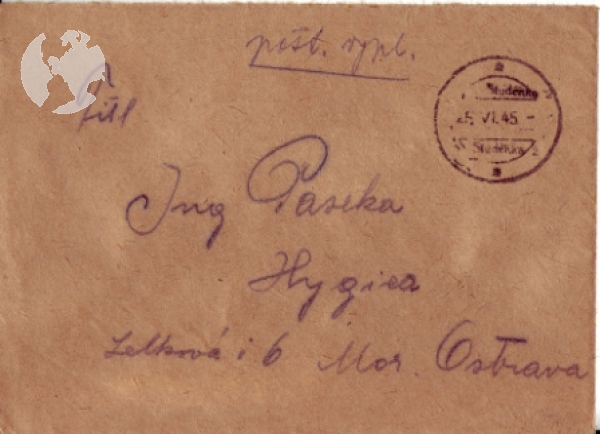 pošt. vypl.
Studénka
25 VI.45
Studénka 2
Titl
Ing Paseka
Hygiea
Zelková i 6 Mor. Ostrava